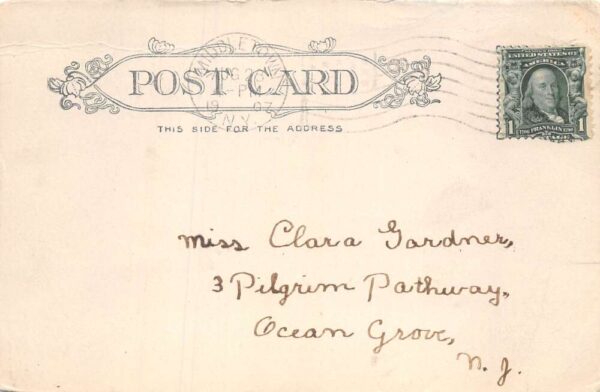 MIDDLETOWN
POST CARD
1907
N.Y.
THIS SIDE FOR THE ADDRESS
UNITED STATES OF
AMERICA
1 FRANKLIN 1
Miss Clara Gardner,
3 Pilgrim Pathway,
Ocean Grove,
N. J.